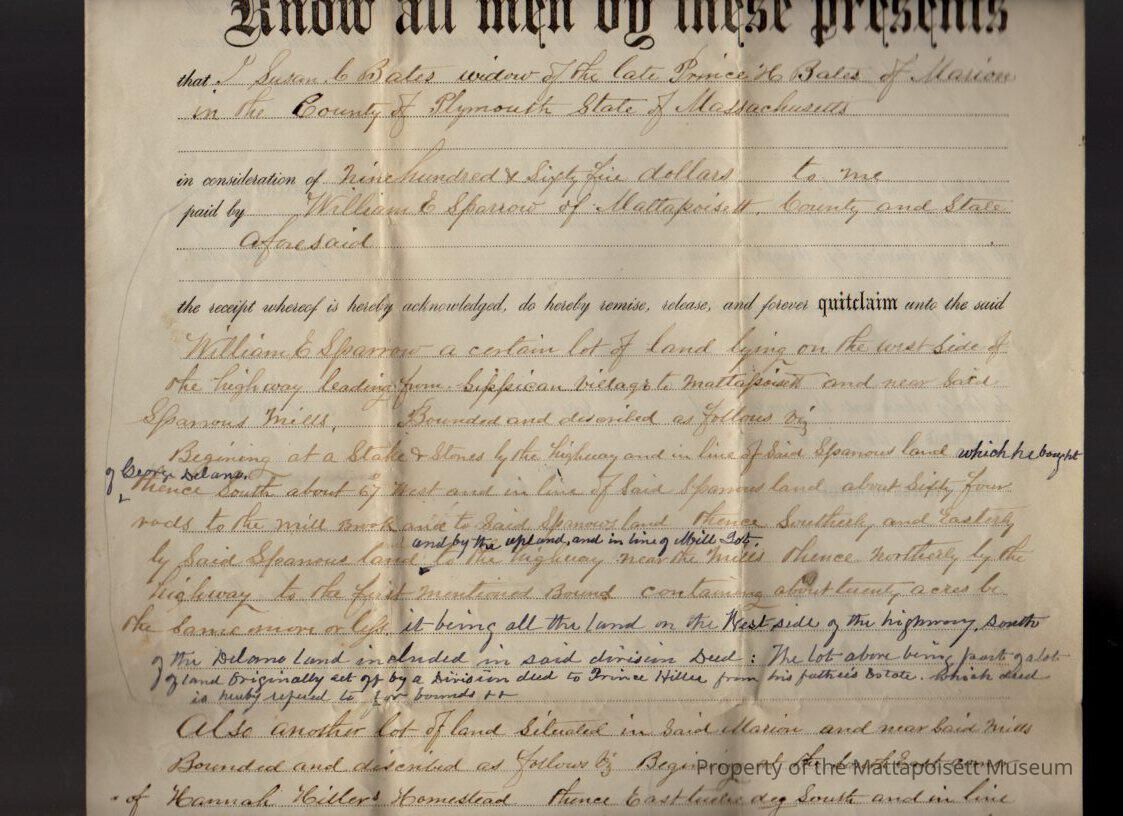 Know all men by these presents
that I Susan C Bates widow of the late Prince H Bates of Marion
in the County of Plymouth State of Massachusetts
in consideration of nine hundred & Sixty five dollars to me
paid by William E Sparrow of Mattapoisett, County and State
aforesaid
the receipt whereof is hereby acknowledged, do hereby remise, release, and forever quitclaim unto the said
William E Sparrow a certain lot of land lying on the west side of
the highway leading from Sippican village to Mattapoisett and near said
Sparrows Mills, Bounded and discribed as follows viz
Begining at a Stake & Stones by the highway and in line of Said Sparrows land which he bought
of George Delano,
thence South about 67° West and in line of Said Sparrows land about Sixty four
rods to the mill Brook and to Said Sparrows land thence Southerly and Easterly
and by the upland, and in line of Mill Lot,
by Said Sparrows land to the highway near the Mills thence northerly by the
highway to the first mentioned Bound containing about twenty acres be
the same more or less. it being all the land on the West side of the highway, south
of the Delano land included in said division Deed : The lot above being part of a lot
of land Originally set off by a Division deed to Prince Hiller from his fathers Estate. which deed
is hereby refered to for bounds &c
Also another lot of land Situated in Said Marion and near Said Mills
Bounded and discribed as follows viz Begining at the South East corner
of Hannah Hiller's Homestead thence East twelve deg South and in line
Property of the Mattapoisett Museum